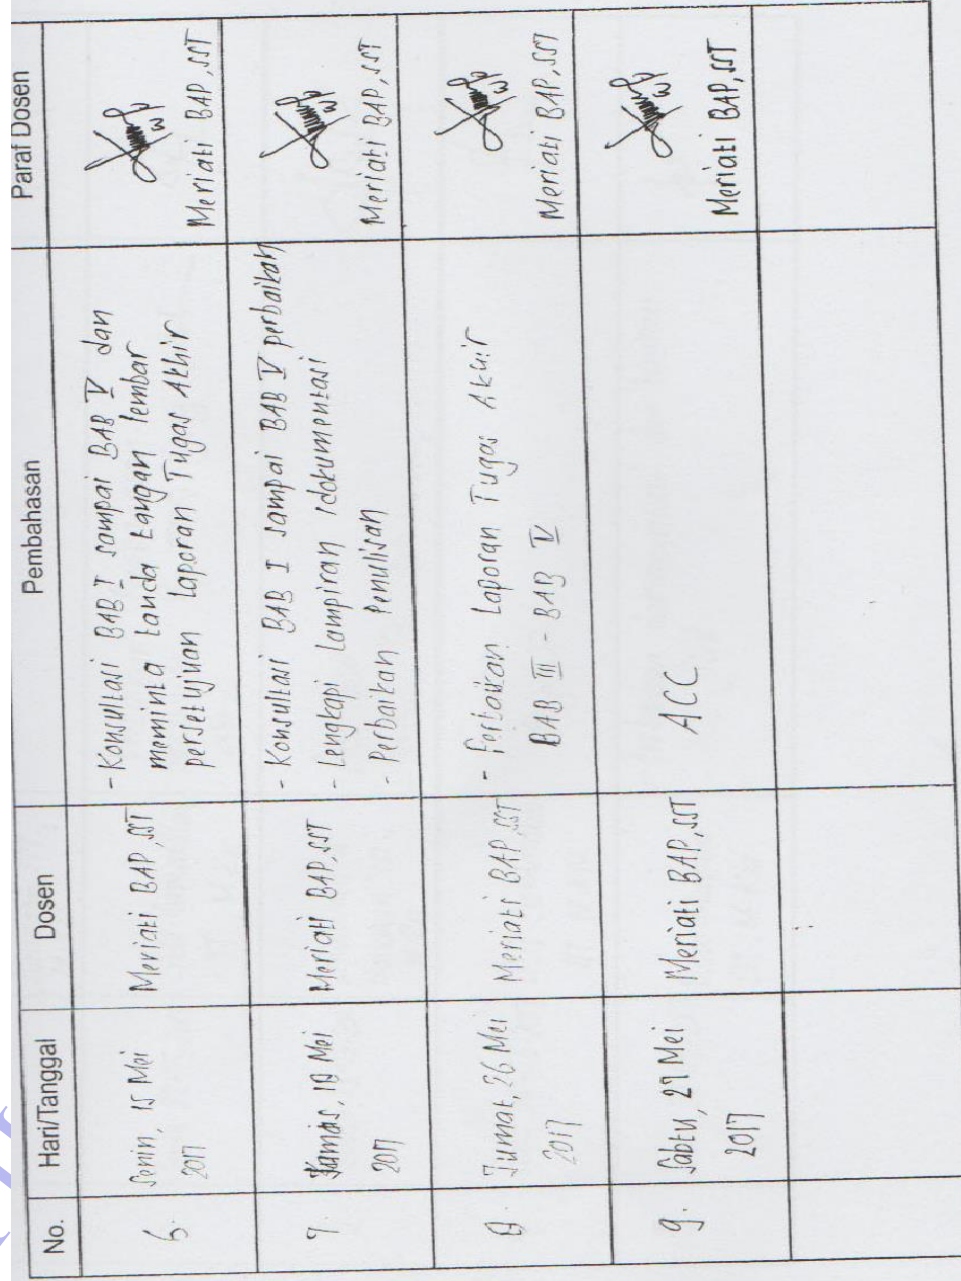 No. Hari/Tanggal Dosen Pembahasan Paraf Dosen
6. Senin, 15 Mei
2017
Meriati BAP, SST
- Konsultasi BAB I sampai BAB V dan
meminta tanda tangan lembar
persetujuan Laporan Tugas Akhir
Meriati BAP, SST
7. Kamis, 18 Mei
2017
Meriati BAP, SST
- Konsultasi BAB I sampai BAB V perbaikan
- Lengkapi Lampiran /dokumentasi
- Perbaikan Penulisan
Meriati BAP, SST
8. Jumat, 26 Mei
2017
Meriati BAP, SST
- Perbaikan Laporan Tugas Akhir
BAB III - BAB V
Meriati BAP, SST
9. Sabtu, 27 Mei
2017
Meriati BAP, SST
ACC
Meriati BAP, SST